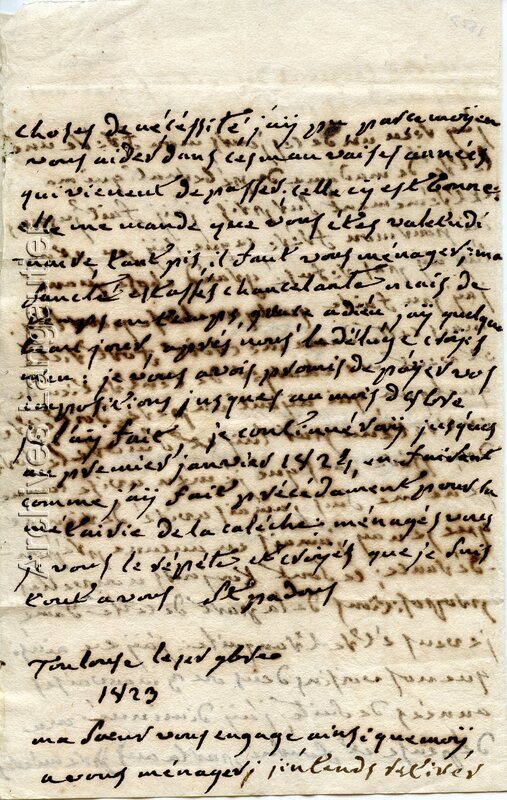 choses de nécéssité, j'aÿ pu parce moÿen
vous aider dans ces mauvaises années
qui vienent de passer, si celle cÿ est bonne
elle me mande que vous étes valetudi
naire, tant pis, il faut vous ménager, ma
santé est assés chancelante mais de
temps en temps, grace a dieu, j'aÿ quelque
bons jours, aprés nous le déluge croÿés
moi: je vous avois promis de païer vos
impositions jusques au mois d'8bre
je l'aÿ fait je continuéraÿ jusques
au premier janvier 1824, en faisent
comme j'aÿ fait précédament pour la
métairie de la caléche. ménagés vous
je vous le répéte et croÿés que je suis
tout a vous St padous
Toulouse le 1er 9bre
1823
ma soeur vous engage ainsi que moÿ
a vous ménager, j'intends
Archives Langautier
1823